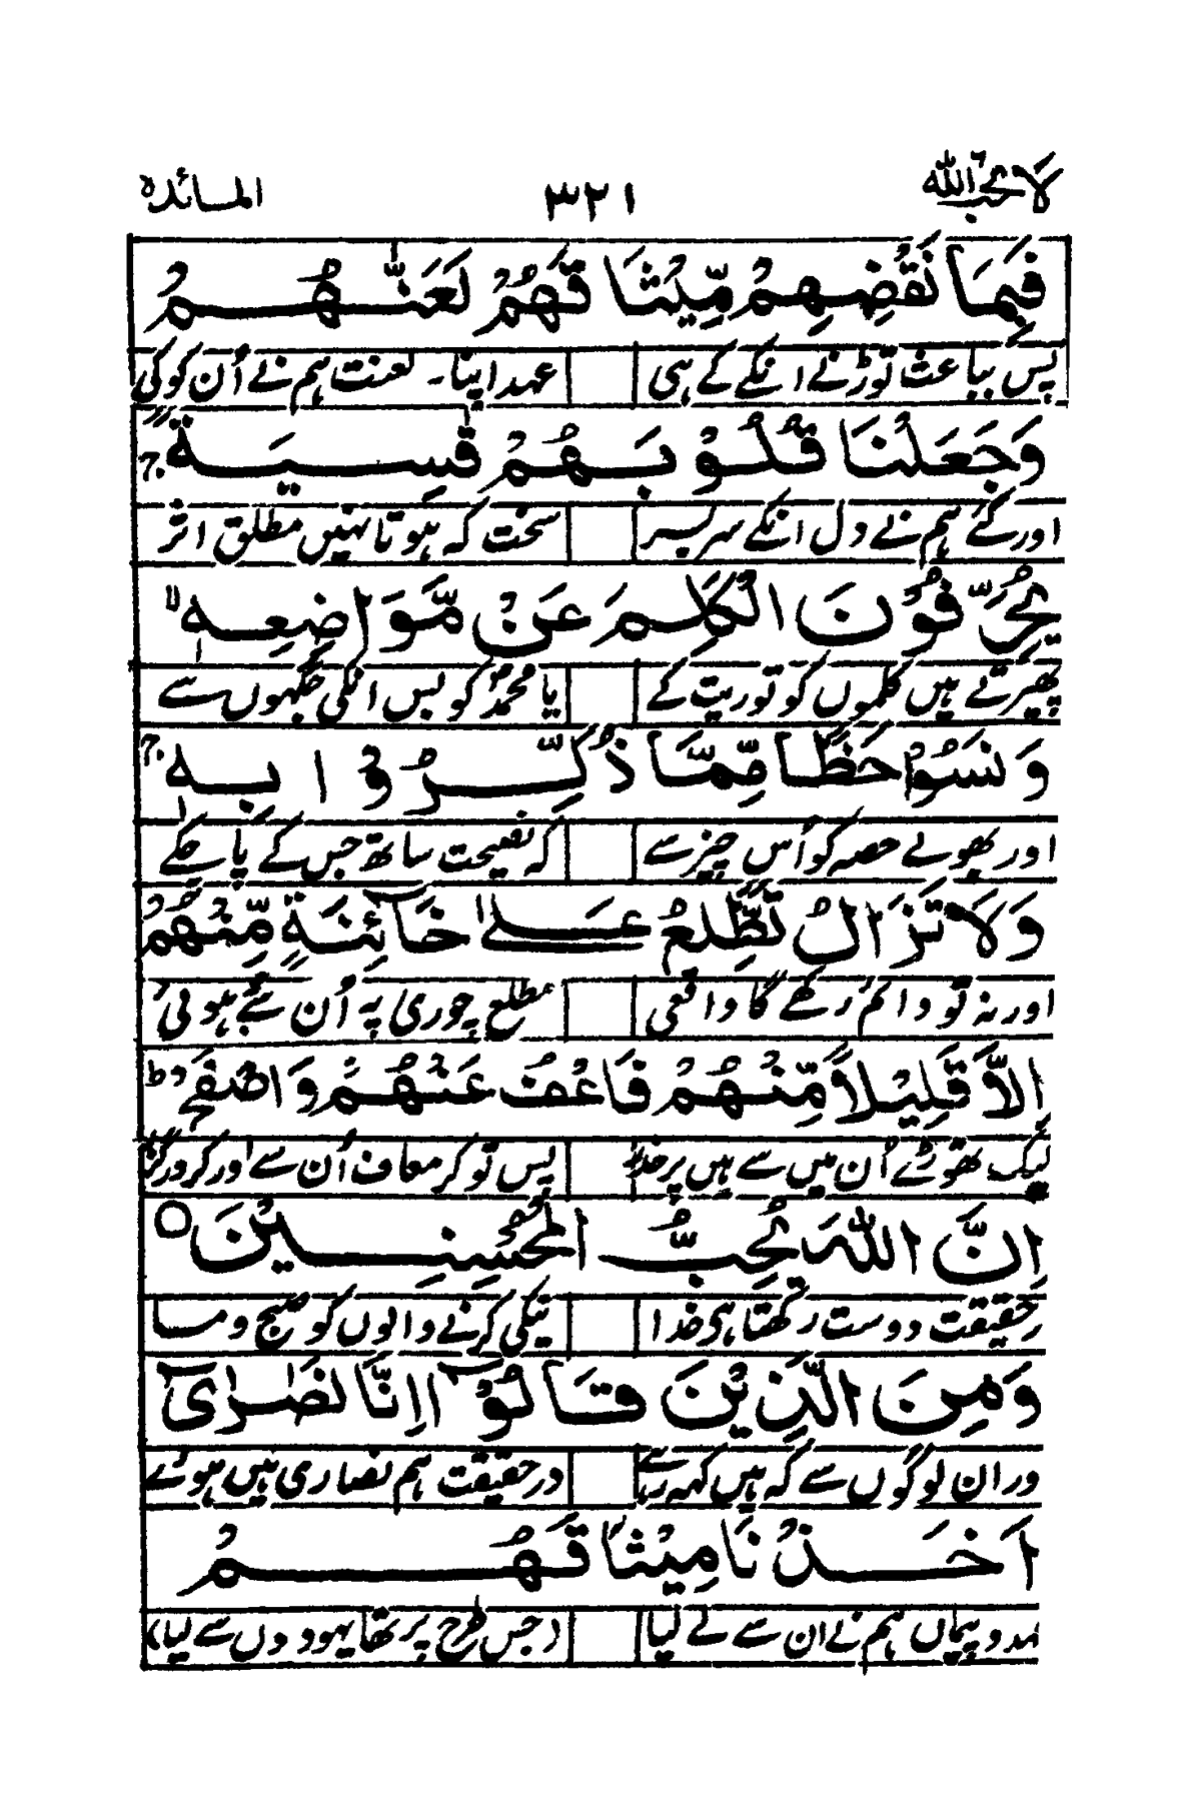 لا یحب اللہ ۳۲۱ المائدہ
فَبِمَا نَقْضِهِمْ مِّيْثَاقَهُمْ لَعَنّٰهُمْ
پس بباعث توڑنے انکے کے ہی عہد اپنا۔ لعنت ہم نے اُن کو کی
وَجَعَلْنَا قُلُوْبَهُمْ قٰسِيَةً ۚ
اور کئے ہم نے دل انکے سر بسر سخت کہ ہوتا نہیں مطلق اثر
يُحَرِّفُوْنَ الْكَلِمَ عَنْ مَّوَاضِعِهٖ ۙ
پھیرتے ہیں کلموں کو توریت کے یا محمدؐ کو بس انکی جگہوں سے
وَنَسُوْا حَظًّا مِّمَّا ذُكِّرُوْا بِهٖ ۚ
اور بھولے حصہ کو اُس چیز سے کہ نصیحت ساتھ جس کے پا چکے
وَلَا تَزَالُ تَطَّلِعُ عَلٰى خَآئِنَةٍ مِّنْهُمْ
اور نہ تو دائم رکھے گا واقعی مطلع چوری پہ اُن سے ہوئی
اِلَّا قَلِيْلًا مِّنْهُمْ فَاعْفُ عَنْهُمْ وَاصْفَحْ ؕ
لیک تھوڑے اُن میں سے ہیں پس تو کر معاف اُن سے اور کر درگزر
اِنَّ اللّٰهَ يُحِبُّ الْمُحْسِنِيْنَ ○
حقیقت دوست رکھتا ہی خدا نیکی کرنے والوں کو صبح و مسا
وَمِنَ الَّذِيْنَ قَالُوْٓا اِنَّا نَصٰرٰٓى
ور ان لوگوں سے کہ ہیں کہہ رہے در حقیقت ہم نصاری ہیں ہوئے
اَخَذْنَا مِيْثَاقَهُمْ
ہد و پیماں ہم نے ان سے لے لیا (جس طرح پر تھا یہودوں سے لیا)